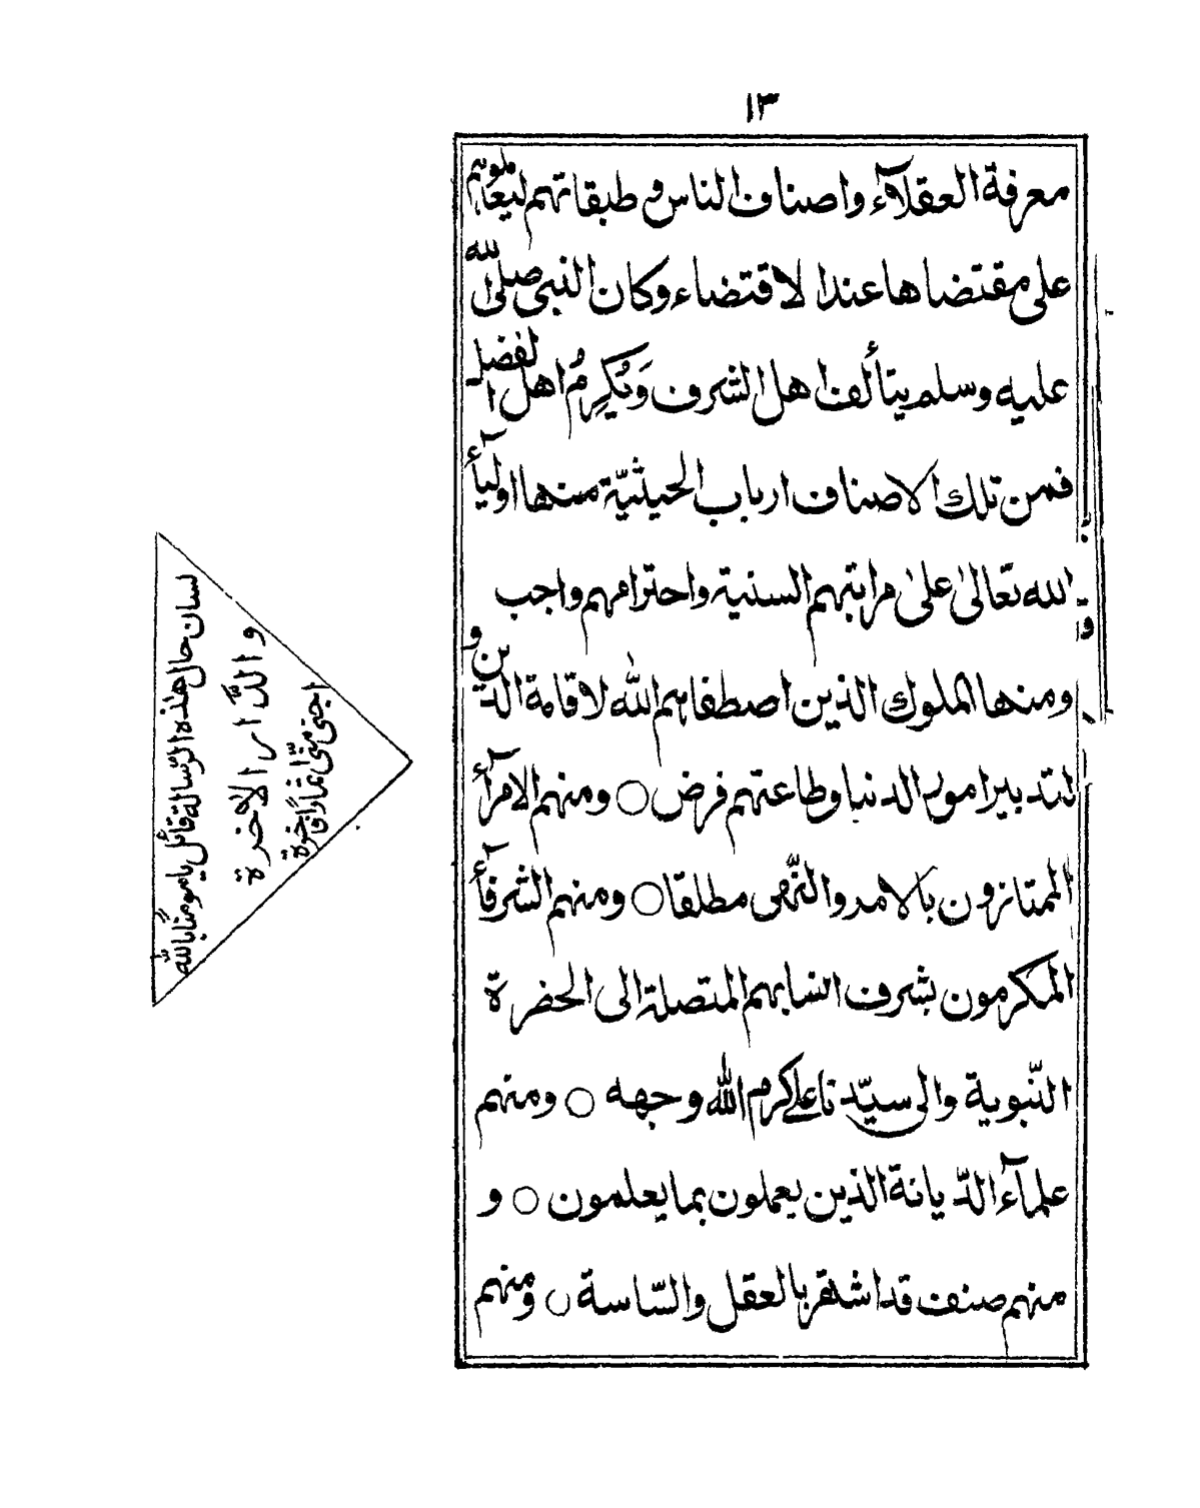 ١٣
معرفة العقلاۤء واصناف الناس و طبقاتهم ليعاملوهم
على مقتضاها عند الاقتضاء وكان النبى صلى الله
عليه وسلم يتألف اهل الشرف وَيُكرِمُ اهل الفضل
فمن تلك الاصناف ارباب الحيثيّة منها اولياۤء
الله تعالىٰ علىٰ مراتبهم السنية واحترامهم واجب
ومنها الملوك الذين اصطفاهم الله لاقامة الدّين و
لتدبير امور الدنيا وطاعتهم فرض ○ ومنهم الامراۤء
الممتازون بالامر والنّهى مطلقا ○ ومنهم الشرفاۤء
المكرمون بشرف انسابهم المتصلة الى الحضرة
النّبوية والى سيّدنا على كرم الله وجهه ○ ومنهم
علماۤء الدّيانة الذين يعملون بما يعلمون ○ و
منهم صنف قد اشتهر بالعقل والسّاسة ○ ومنهم
لسان حال هذه الرّسالة قائل يا مومنًا بالله
و الدَّار الاخرة
اجتنى منّى ثمارًا فاخرة